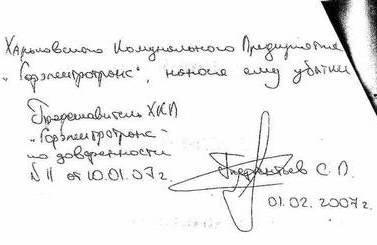 Харьковского Комунального Предприятия
„Горэлектротранс“, нанося ему убытки
Представитель ХКП
„Горэлектротранс“
по доверенности
№11 от 10.01.07г.
С. П.
01.02.2007г.